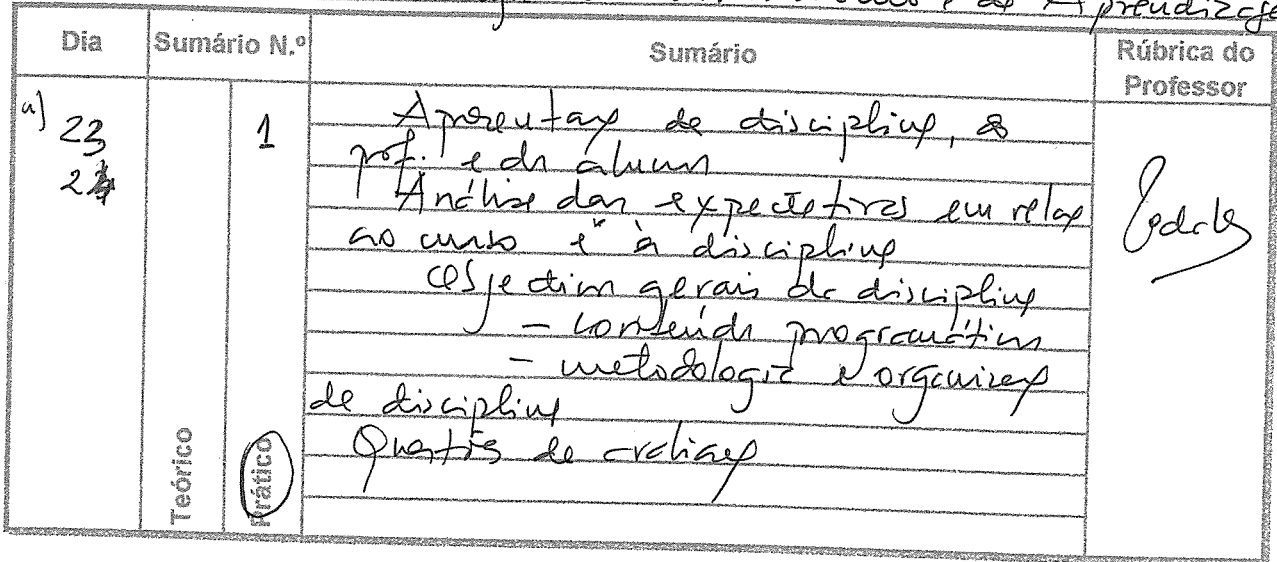 e da Aprendizagem
Dia
Sumário N.º
Sumário
Rúbrica do
Professor
a) 23
1
Teórico
Prático
Apresentação da disciplina, do
prof. e dos alunos
Análise das expectativas em relação
ao curso e à disciplina
Objectivos gerais da disciplina
- conteúdos programáticos
- metodologia e organização
da disciplina
Questões de avaliação